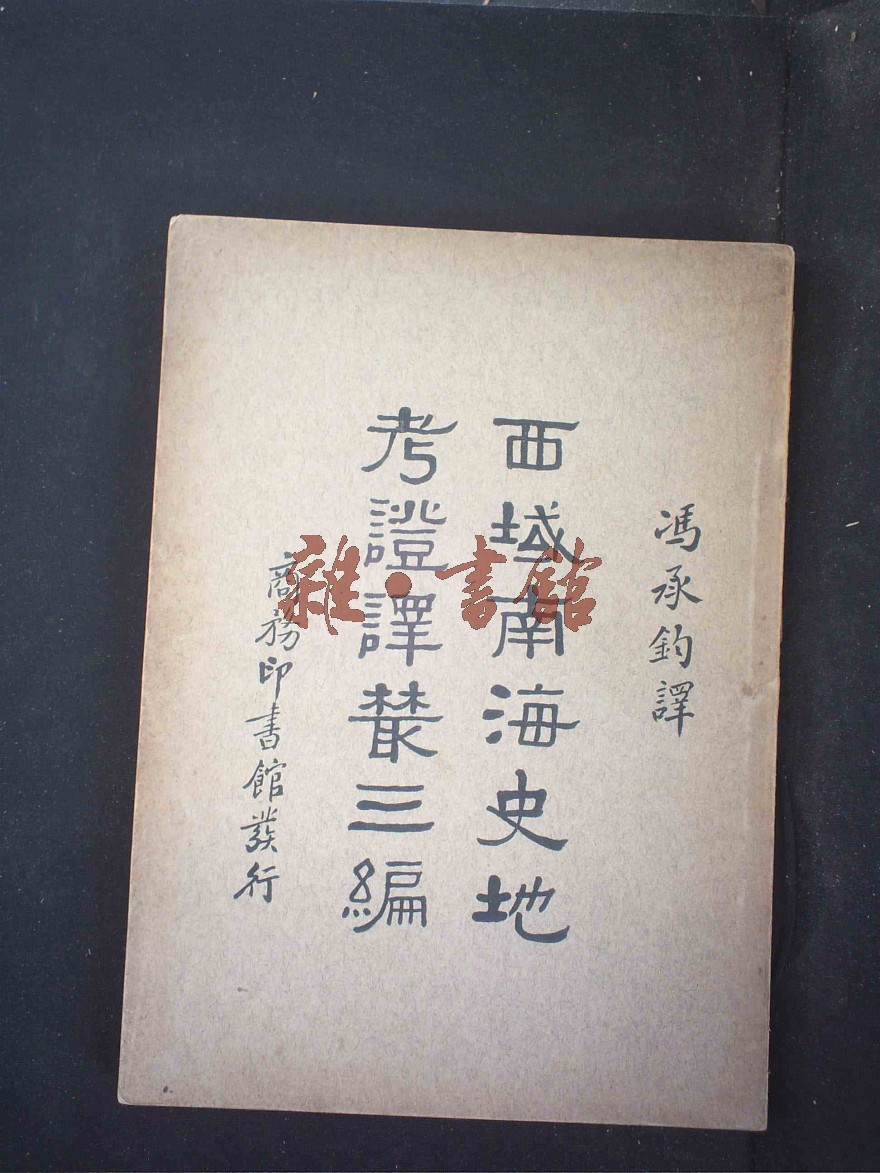 馮承鈞譯
西域南海史地
考證譯叢三編
商務印書館發行
雜·書館